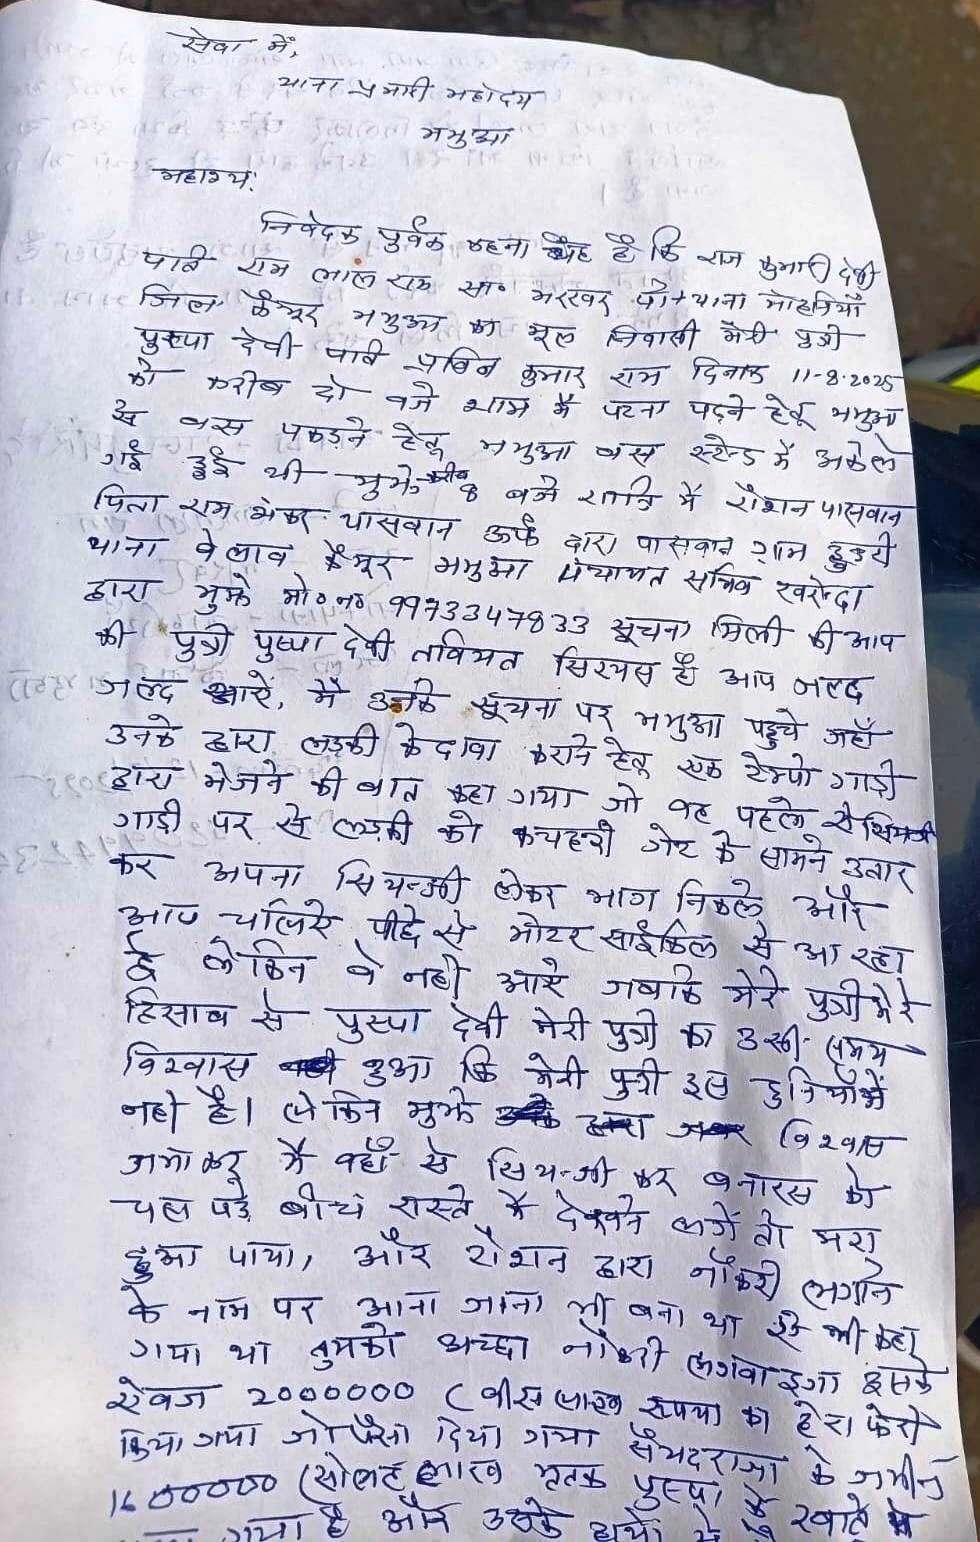 सेवा में,
थाना प्रभारी महोदय
भभुआ
महाशय:
निवेदक पुर्वक कहना यह है कि राज कुमारी देवी
पति राम लाल राम सा० भरखर पो+थाना मोहनियाँ
जिला कैमूर भभुआ का मूल निवासी मेरी पुत्री
पुस्पा देवी पति प्रविन कुमार राम दिनांक 11-8-2025
को करीब दो बजे शाम में पटना पढ़ने हेतू भभुआ
से बस पकड़ने हेतू भभुआ बस स्टेन्ड में अकेले
गई हुई थी मुझे करीब 8 बजे रात्रि में रौशन पासवान
पिता राम शंकर पासवान उर्फ दारा पासवान ग्राम डुडुरी
थाना बेलाव कैमूर भभुआ पंचायत सचिव खरेन्दा
द्वारा मुझे मो० न० 9973347833 सूचना मिली की आप
की पुत्री पुस्पा देवी तबियत सिरयस है आप जल्द
जल्द आऐं, मै उनके सूचना पर भभुआ पहुचे जहाँ
उनके द्वारा लड़की के दावा कराने हेतू एक टेम्पो गाड़ी
द्वारा भेजने की बात कहा गया जो वह पहले से
गाड़ी पर से लड़की को कचहरी गेट के सामने उतार
कर अपना सियन्जी लेकर भाग निकले और
आप चलिऐ पीछे से मोटर साईकिल से आ रहा
हूँ लेकिन वे नही आऐ जबकि मेरे पुत्री मेरे
हिसाब से पुस्पा देवी मेरी पुत्री का उसी समय
विश्वास हुआ कि मेरी पुत्री इस दुनियाँ में
नही है। लेकिन मुझे विश्वास
जमा कर मै वहाँ से सियन्जी कर बनारस को
चल पड़े बीच रास्ते में देखने लगें तो मरा
हुआ पाया, और रौशन द्वारा नौकरी लगाने
के नाम पर आना जाना भी बना था इसे भी कहा
गया था तुमको अच्छा नौकरी लगवा दुगा इसके
ऐवज 2000000 (बीस लाख रूपया का हेरा फेरी
किया गया जो पैसा दिया गया सैयदराजा के जमीन
1600000 (सोलह लाख मृतक पुस्पा के खाते में
गया है और उसके